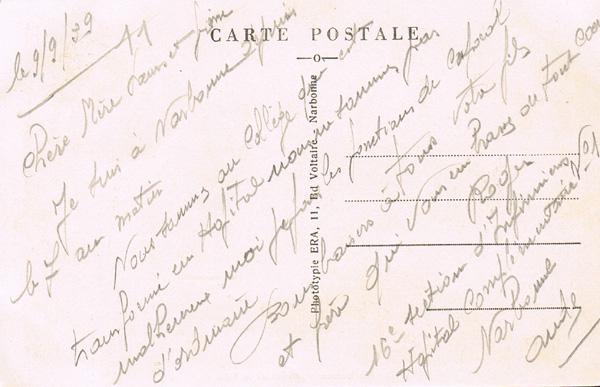 CARTE POSTALE
Phototypie ERA, 11, Bd Voltaire, Narbonne
le 9/9/39
Chère Mère Sœurs et frère
Je suis à Narbonne depuis
le 7 au matin
Nous sommes au Collège qui est
transformé en Hôpital nous ne sommes pas
malheureux moi je fais les fonctions de caporal
d'ordinaire Bons baisers à tous votre fils
et frère qui vous en Prans de tout Coeur
Roger
16e section d'Infirmiers
Hôpital Complémentaire
Narbonne
Aude